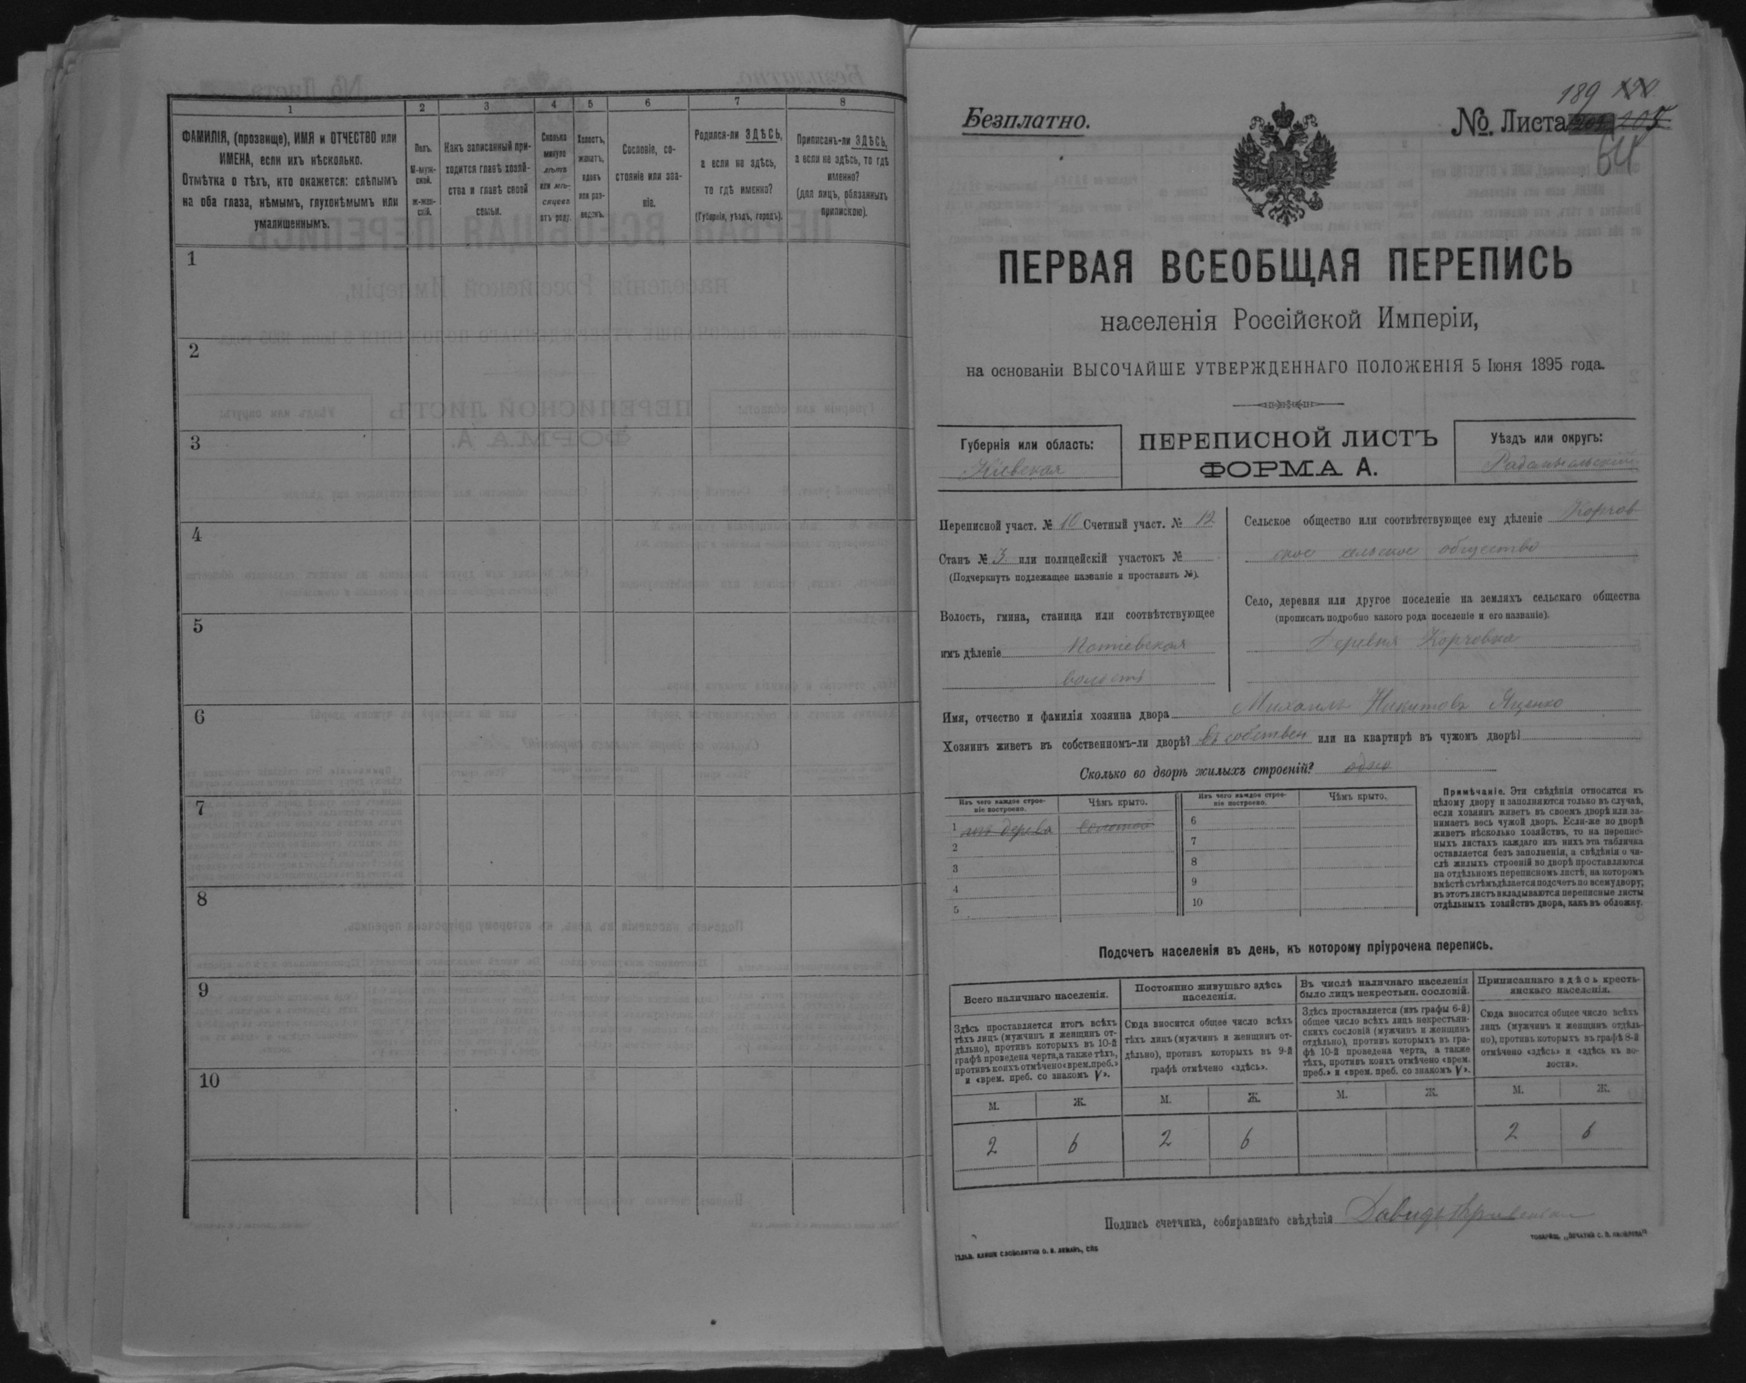 1
2
3
4
5
6
7
8
ФАМИЛІЯ, (прозвище), ИМЯ и ОТЧЕСТВО или
ИМЕНА, если ихъ нѣсколько.
Отмѣтка о тѣхъ, кто окажется: слѣпымъ
на оба глаза, нѣмымъ, глухонѣмымъ или
умалишеннымъ.
Полъ.
М-муж-
ской.
ж-жен-
скій.
Какъ записанный при-
ходится главѣ хозяй-
ства и главѣ своей
семьи.
Сколько
минуло
лѣтъ
или мѣ-
сяцевъ
отъ роду.
Холостъ,
женатъ,
вдовъ
или раз-
веденъ.
Сословіе, со-
стояніе или зва-
ніе.
Родился-ли ЗДѢСЬ,
а если не здѣсь,
то гдѣ именно?
(Губернія, уѣздъ, городъ).
Приписанъ-ли ЗДѢСЬ,
а если не здѣсь, то гдѣ
именно?
(для лицъ, обязанныхъ
припискою).
1
2
3
4
5
6
7
8
9
10
189
Безплатно.
№. Листа
ПЕРВАЯ ВСЕОБЩАЯ ПЕРЕПИСЬ
населенія Россійской Имперіи,
на основаніи ВЫСОЧАЙШЕ УТВЕРЖДЕННАГО ПОЛОЖЕНІЯ 5 Іюня 1895 года.
Губернія или область:
Кіевская
ПЕРЕПИСНОЙ ЛИСТЪ
ФОРМА А.
Уѣздъ или округъ:
Радомысльскій
Переписной участ. № 10 Счетный участ. № 12
Станъ № 3 или полицейскій участокъ №
(Подчеркнуть подлежащее названіе и проставить №).
Волость, гмина, станица или соотвѣтствующее
имъ дѣленіе Потіевская
волость
Сельское общество или соотвѣтствующее ему дѣленіе Корчов
ское сельское общество
Село, деревня или другое поселеніе на земляхъ сельскаго общества
(прописать подробно какого рода поселеніе и его названіе).
Деревня Корчовка
Имя, отчество и фамилія хозяина двора Михаилъ Никитовъ Яценко
Хозяинъ живетъ въ собственномъ-ли дворѣ? въ собствен или на квартирѣ въ чужомъ дворѣ?
Сколько во дворѣ жилыхъ строеній? одно
Изъ чего каждое строе-
ніе построено.
Чѣмъ крыто.
Изъ чего каждое строе-
ніе построено.
Чѣмъ крыто.
1 изъ дерева соломой
2
3
4
5
6
7
8
9
10
Примѣчаніе. Эти свѣдѣнія относятся къ
цѣлому двору и заполняются только въ случаѣ,
если хозяинъ живетъ въ своемъ дворѣ или за-
нимаетъ весь чужой дворъ. Если-же во дворѣ
живетъ нѣсколько хозяйствъ, то на перепис-
ныхъ листахъ каждаго изъ нихъ эта табличка
оставляется безъ заполненія, а свѣдѣнія о чи-
слѣ жилыхъ строеній во дворѣ проставляются
на отдѣльномъ переписномъ листѣ, на которомъ
вмѣстѣ съ тѣмъ дѣлается подсчетъ по всему двору;
въ этотъ листъ вкладываются переписные листы
отдѣльныхъ хозяйствъ двора, какъ въ обложку.
Подсчетъ населенія въ день, къ которому пріурочена перепись.
Всего наличнаго населенія.
Здѣсь проставляется итогъ всѣхъ
тѣхъ лицъ (мужчинъ и женщинъ от-
дѣльно), противъ которыхъ въ 10-й
графѣ проведена черта, а также тѣхъ,
противъ коихъ отмѣчено «врем. преб.»
и «врем. преб. со знакомъ V».
Постоянно живущаго здѣсь
населенія.
Сюда вносится общее число всѣхъ
тѣхъ лицъ (мужчинъ и женщинъ от-
дѣльно), противъ которыхъ въ 9-й
графѣ отмѣчено «здѣсь».
Въ числѣ наличнаго населенія
было лицъ некрестьян. сословій.
Здѣсь проставляется (изъ графы 6-й)
общее число всѣхъ лицъ некрестьян-
скихъ сословій (мужчинъ и женщинъ
отдѣльно), противъ которыхъ въ гра-
фѣ 10-й проведена черта, а также
тѣхъ, противъ коихъ отмѣчено «врем.
преб.» и «врем. преб. со знакомъ V».
Приписаннаго здѣсь кресть-
янскаго населенія.
Сюда вносится общее число всѣхъ
лицъ (мужчинъ и женщинъ отдѣль-
но), противъ которыхъ въ графѣ 8-й
отмѣчено «здѣсь» и «здѣсь въ во-
лости».
М. Ж. М. Ж. М. Ж. М. Ж.
2 6 2 6 2 6
Подпись счетчика, собиравшаго свѣдѣнія Давидъ